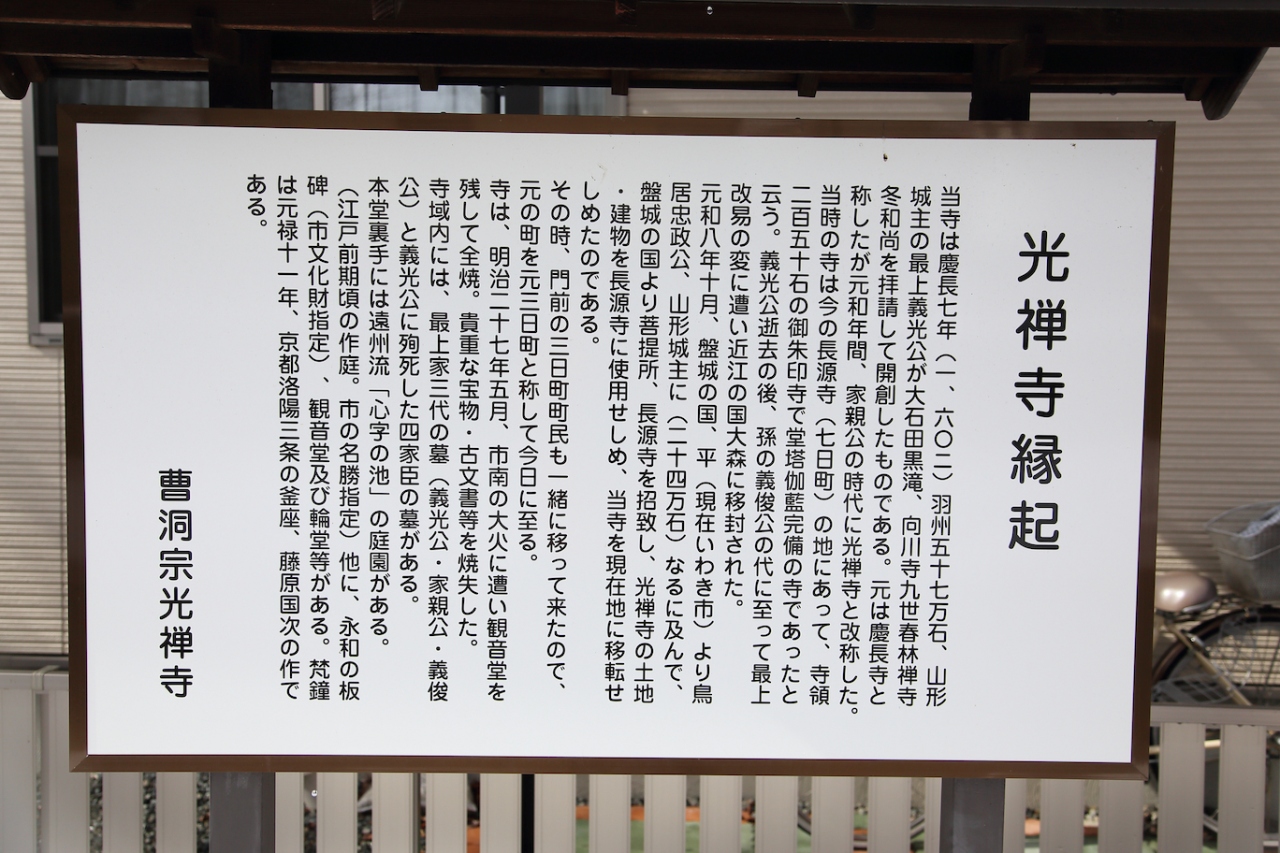 光禅寺縁起
当寺は慶長七年（一、六〇二）羽州五十七万石、山形
城主の最上義光公が大石田黒滝、向川寺九世春林禅寺
冬和尚を拝請して開創したものである。元は慶長寺と
称したが元和年間、家親公の時代に光禅寺と改称した。
当時の寺は今の長源寺（七日町）の地にあって、寺領
二百五十石の御朱印寺で堂塔伽藍完備の寺であったと
云う。義光公逝去の後、孫の義俊公の代に至って最上
改易の変に遭い近江の国大森に移封された。
元和八年十月、盤城の国、平（現在いわき市）より鳥
居忠政公、山形城主に（二十四万石）なるに及んで、
盤城の国より菩提所、長源寺を招致し、光禅寺の土地
・建物を長源寺に使用せしめ、当寺を現在地に移転せ
しめたのである。
その時、門前の三日町町民も一緒に移って来たので、
元の町を元三日町と称して今日に至る。
寺は、明治二十七年五月、市南の大火に遭い観音堂を
残して全焼。貴重な宝物・古文書等を焼失した。
寺域内には、最上家三代の墓（義光公・家親公・義俊
公）と義光公に殉死した四家臣の墓がある。
本堂裏手には遠州流「心字の池」の庭園がある。
（江戸前期頃の作庭。市の名勝指定）他に、永和の板
碑（市文化財指定）、観音堂及び輪堂等がある。梵鐘
は元禄十一年、京都洛陽三条の釜座、藤原国次の作で
ある。
曹洞宗光禅寺